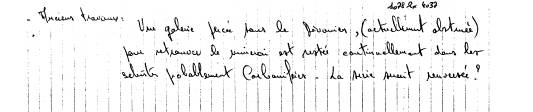 - Anciens travaux: Une galerie percée dans le Dévonien, (actuellement obstruée)
pour retrouver le minerai est restée continuellement dans les
schistes probablement Carbonifères - La série serait renversée ?